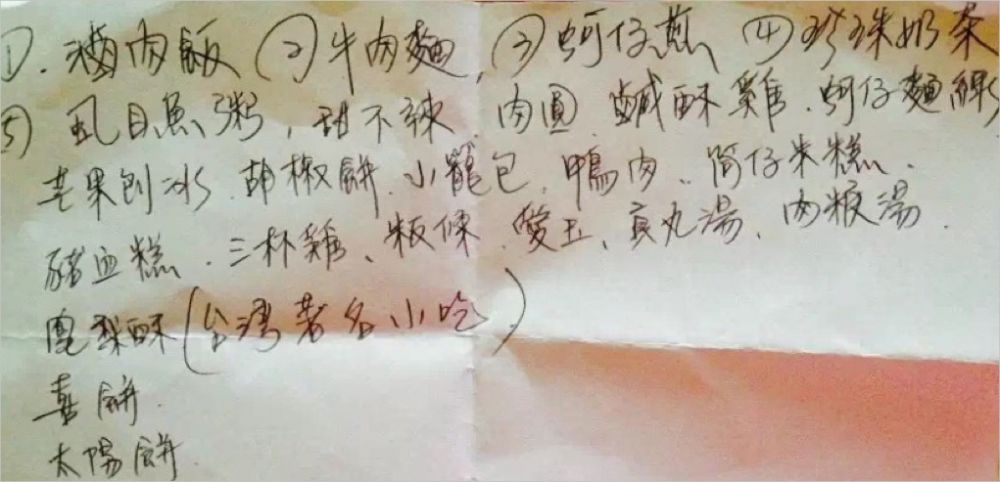 ①. 滷肉飯 ② 牛肉麵, ③ 蚵仔煎 ④ 珍珠奶茶
⑤ 虱目魚粥, 甜不辣. 肉圓. 鹹酥雞. 蚵仔麵線
芒果刨冰. 胡椒餅. 小籠包. 鴨肉、筒仔米糕.
豬血糕. 三杯雞、粄條. 愛玉、貢丸湯、肉粳湯.
鳳梨酥 (台灣著名小吃)
喜餅.
太陽餅.